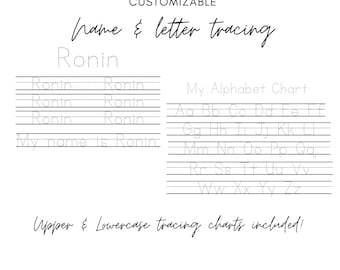 CUSTOMIZABLE
Name & letter tracing
Ronin
Ronin Ronin
Ronin Ronin
Ronin Ronin
My name is Ronin
My Alphabet Chart
Aa Bb Cc Dd Ee Ff
Gg Hh Ii Jj Kk Ll
Mm Nn Oo Pp Qq
Rr Ss Tt Uu Vv
Ww Xx Yy Zz
Upper & Lowercase tracing charts included!